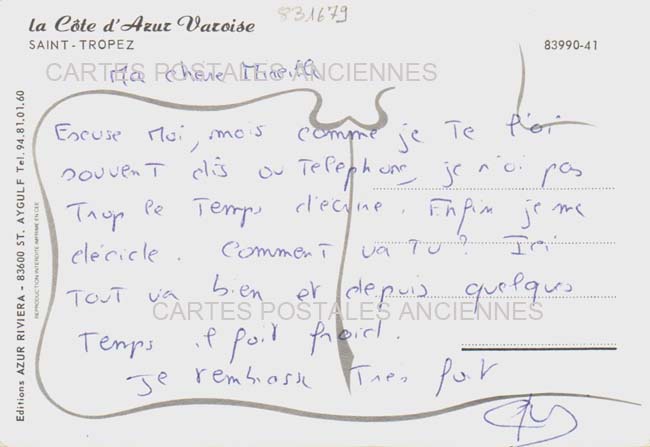 831679
la Côte d'Azur Varoise
SAINT-TROPEZ
83990-41
Ma chère Mireille
CARTES POSTALES ANCIENNES
Escuse Moi, mais comme je Te l'ai
souvent dis au Telephone, je n'ai pas
Trop le Temps d'écrire. Enfin je me
décide. Comment va Tu ? Ici
Tout va bien et depuis quelques
CARTES POSTALES ANCIENNES
Temps il fait froid.
Je t'embrasse Très fort
Editions AZUR RIVIERA - 83600 ST. AYGULF Tel. 94.81.01.60
REPRODUCTION INTERDITE IMPRIME EN CEE